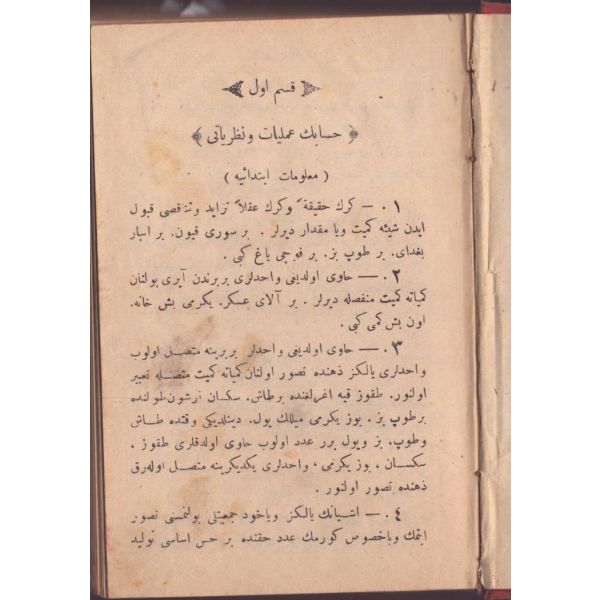 قسم اول
حسابك عمليات و نظرياتى
( معلومات ابتدائيه )
١ . — كرك حقيقةً وكرك عقلاً تزايد وتناقصى قبول
ايدن شيئه كميت ويا مقدار ديرلر . بر سورى قيون . بر انبار
بغداى . بر طوپ بز . بر فوچى ياغ كبى .
٢ . — حاوى اولديغى واحدلرى بربرندن آيرى بولنان
كمياته كميت منفصله ديرلر . بر آلاى عسكر . يكرمى بش خانه .
اون بش كمى كبى .
٣ . — حاوى اولديغى واحدلر بربرينه متصل اولوب
واحدلرى يالكز ذهنده تصور اولنان كمياته كميت متصله تعبير
اولنور . طقوز قيه اغرلغنده برطاش . سكسان آرشون طولنده
برطوپ بز . يوز يكرمى ميللك يول . دينلديكى وقتده طاش
وطوپ ، بز ويول برر عدد اولوب حاوى اولدقلرى طقوز .
سكسان ، يوز يكرمى ، واحدلرى يكديكرينه متصل اوله رق
ذهنده تصور اولنور .
٤ . — اشيانك يالكز وياخود جمعيتلى بولنمسنى تصور
ايتمك وباخصوص كورمك عدد حقنده بر حس اساسى توليد